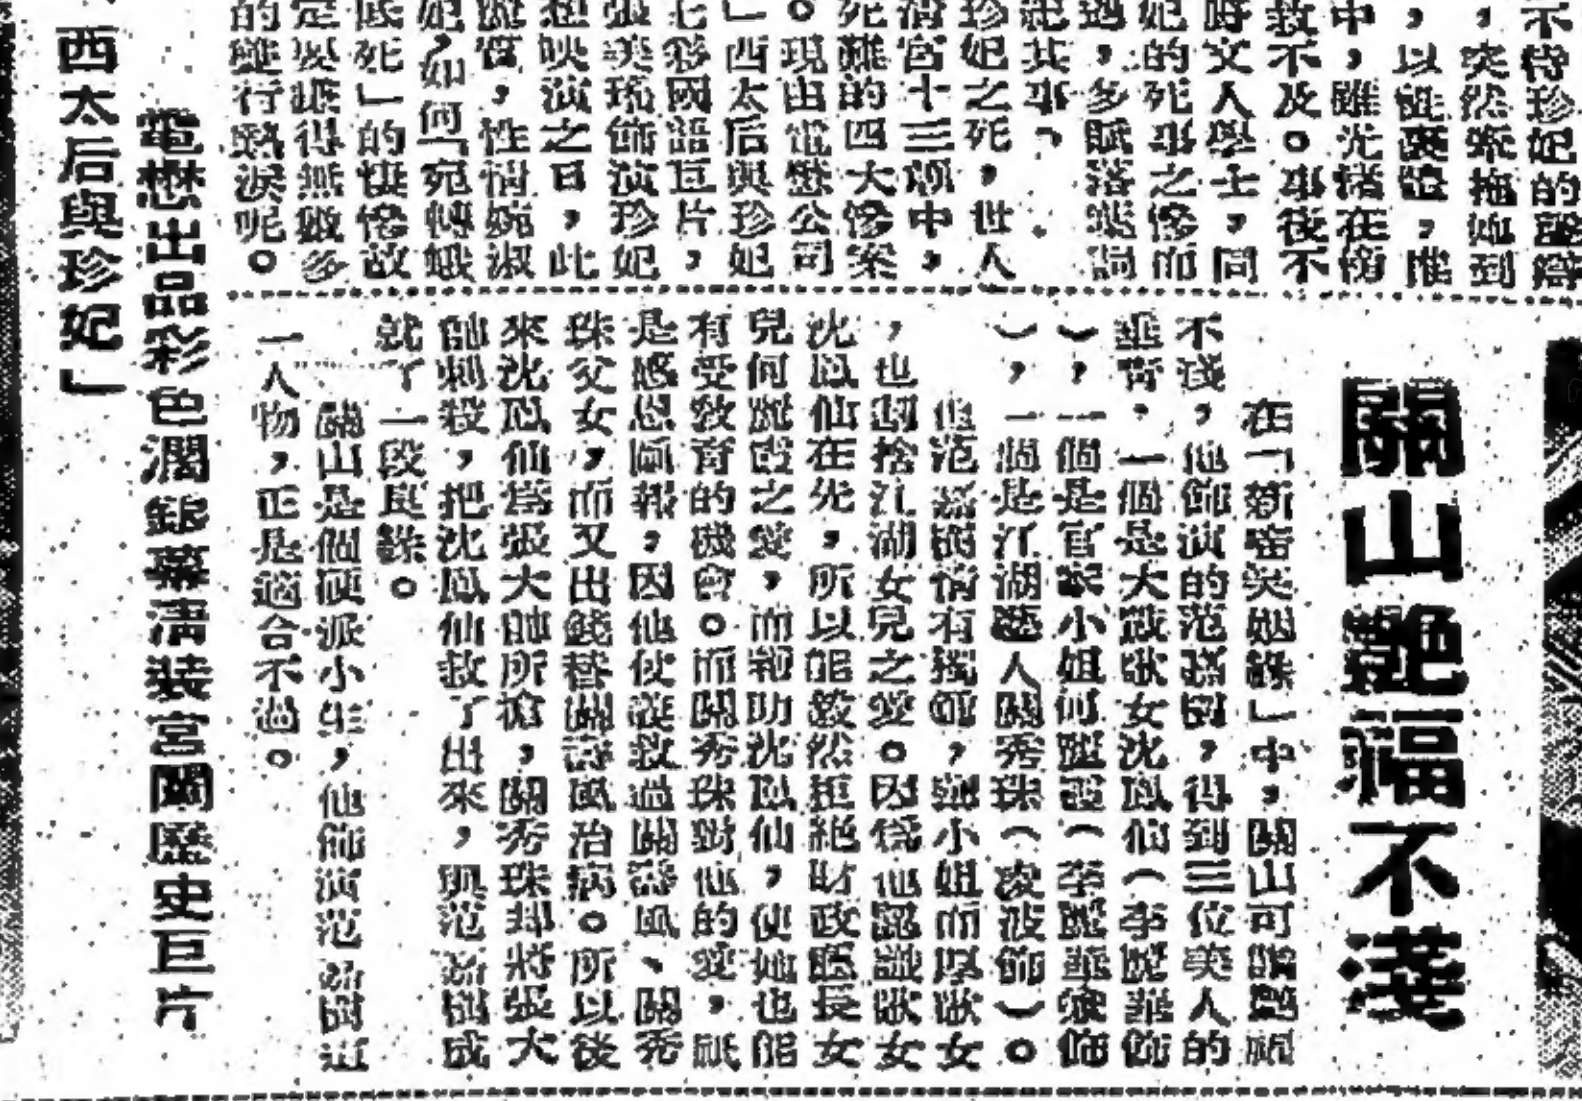 不待珍妃的聲辯
，突然牽拖她到
，以氈裹體，推
中，雖光緒在旁
救不及。事後不
時文人學士，同
妃的死事之慘而
過，多賦落葉詞
紀其事。
珍妃之死，世人
清宮十三朝中，
死難的四大慘案
。現由電懋公司
」西太后與珍妃
七彩國語巨片，
張美瑤飾演珍妃
想映演之日，此
麗質，性情婉淑
妃，如何「宛轉蛾
底死」的悽慘故
定要賺得無數多
的雙行熱淚呢。
電懋出品彩色濶銀幕清裝宮闈歷史巨片
西太后與珍妃」
關山艷福不淺
在「新啼笑姻緣」中，關山可謂艷福
不淺，他飾演的范蓀樹，得到三位美人的
垂青，一個是大鼓歌女沈鳳仙（李麗華飾
），一個是官家小姐何麗霞（李麗華雙飾
），一個是江湖藝人關秀珠（凌波飾）。
但范蓀樹情有獨鍾，對小姐而厚歌女
，也割捨江湖女兒之愛。因為他認識歌女
沈鳳仙在先，所以能毅然拒絕財政廳長女
兒何麗霞之愛，而幫助沈鳳仙，使她也能
有受教育的機會。而關秀珠對他的愛，祇
是感恩圖報，因他使義救過關壽風、關秀
珠父女，而又出錢替關壽風治病。所以後
來沈鳳仙為張大帥所搶，關秀珠却將張大
帥刺殺，把沈鳳仙救了出來，與范蓀樹成
就了一段良緣。
關山是個硬派小生，他飾演范蓀樹這
一人物，正是適合不過。